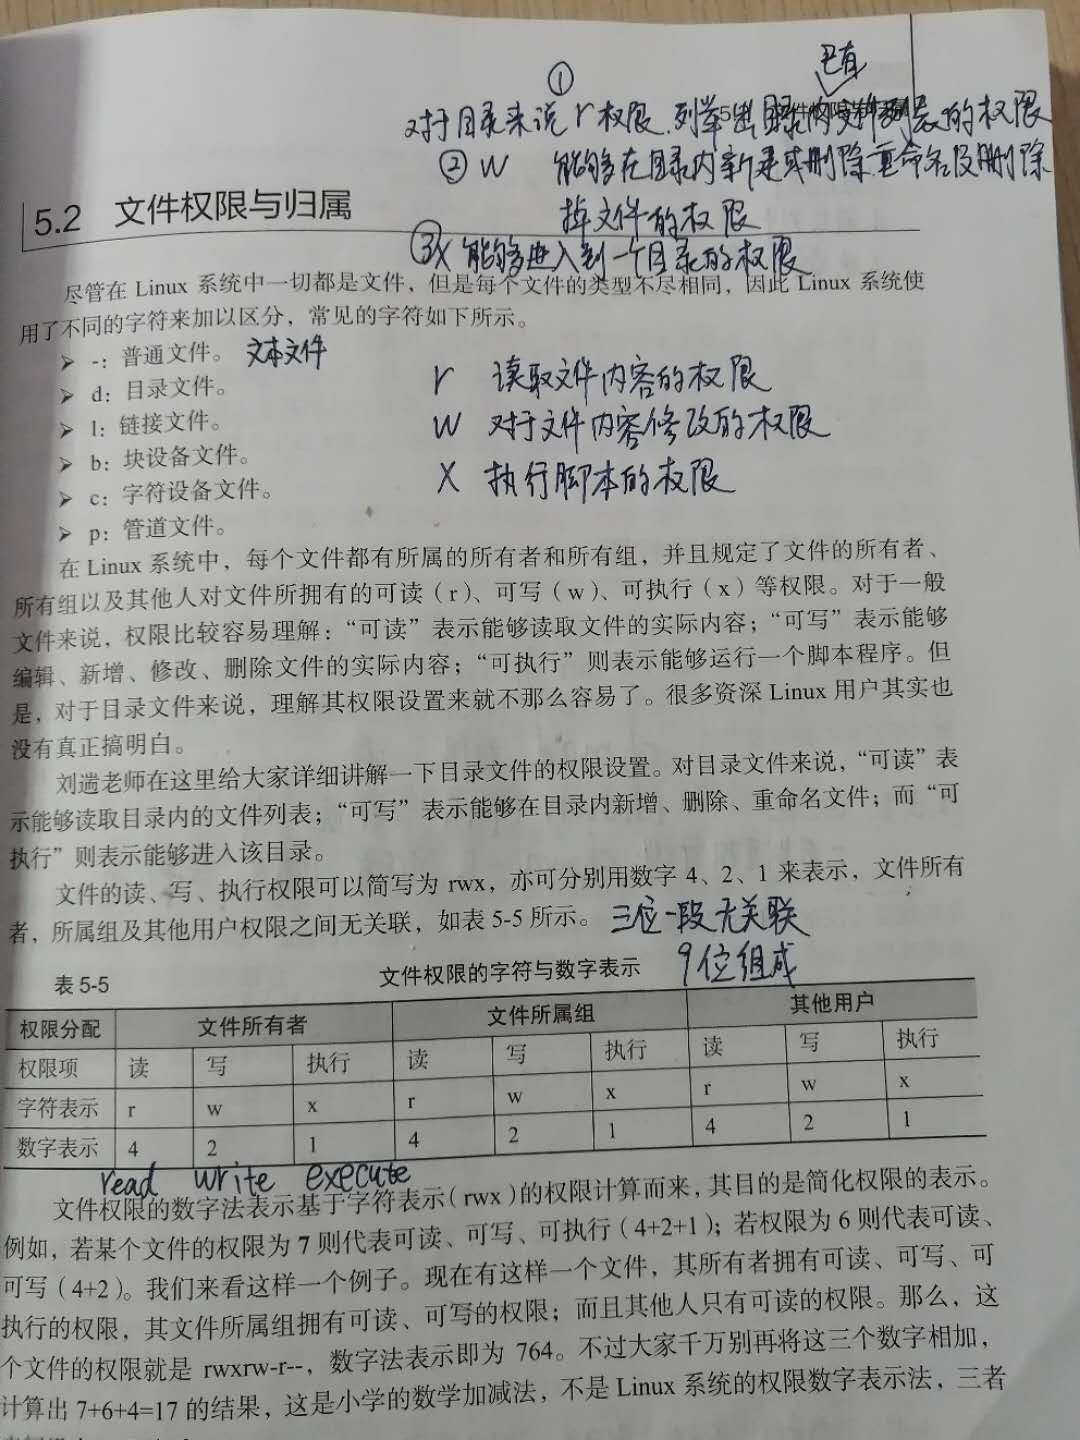 已有
①
对于目录来说 r 权限 列举出目录内文件列表的权限
② w 能够在目录内新建或删除重命名及删除
5.2 文件权限与归属
掉文件的权限
③ x 能够进入到一个目录的权限
尽管在 Linux 系统中一切都是文件，但是每个文件的类型不尽相同，因此 Linux 系统使
用了不同的字符来加以区分，常见的字符如下所示。
➢ -：普通文件。 文本文件
➢ d：目录文件。 r 读取文件内容的权限
➢ l：链接文件。 w 对于文件内容修改的权限
➢ b：块设备文件。
➢ c：字符设备文件。 x 执行脚本的权限
➢ p：管道文件。
在 Linux 系统中，每个文件都有所属的所有者和所有组，并且规定了文件的所有者、
所有组以及其他人对文件所拥有的可读（r）、可写（w）、可执行（x）等权限。对于一般
文件来说，权限比较容易理解：“可读”表示能够读取文件的实际内容；“可写”表示能够
编辑、新增、修改、删除文件的实际内容；“可执行”则表示能够运行一个脚本程序。但
是，对于目录文件来说，理解其权限设置来就不那么容易了。很多资深 Linux 用户其实也
没有真正搞明白。
刘遄老师在这里给大家详细讲解一下目录文件的权限设置。对目录文件来说，“可读”表
示能够读取目录内的文件列表；“可写”表示能够在目录内新增、删除、重命名文件；而“可
执行”则表示能够进入该目录。
文件的读、写、执行权限可以简写为 rwx，亦可分别用数字 4、2、1 来表示，文件所有
者，所属组及其他用户权限之间无关联，如表 5-5 所示。 三位一段无关联
9位组成
表 5-5 文件权限的字符与数字表示
权限分配 文件所有者 文件所属组 其他用户
权限项 读 写 执行 读 写 执行 读 写 执行
字符表示 r w x r w x r w x
数字表示 4 2 1 4 2 1 4 2 1
read write execute
文件权限的数字法表示基于字符表示（rwx）的权限计算而来，其目的是简化权限的表示。
例如，若某个文件的权限为 7 则代表可读、可写、可执行（4+2+1）；若权限为 6 则代表可读、
可写（4+2）。我们来看这样一个例子。现在有这样一个文件，其所有者拥有可读、可写、可
执行的权限，其文件所属组拥有可读、可写的权限；而且其他人只有可读的权限。那么，这
个文件的权限就是 rwxrw-r--，数字法表示即为 764。不过大家千万别再将这三个数字相加，
计算出 7+6+4=17 的结果，这是小学的数学加减法，不是 Linux 系统的权限数字表示法，三者